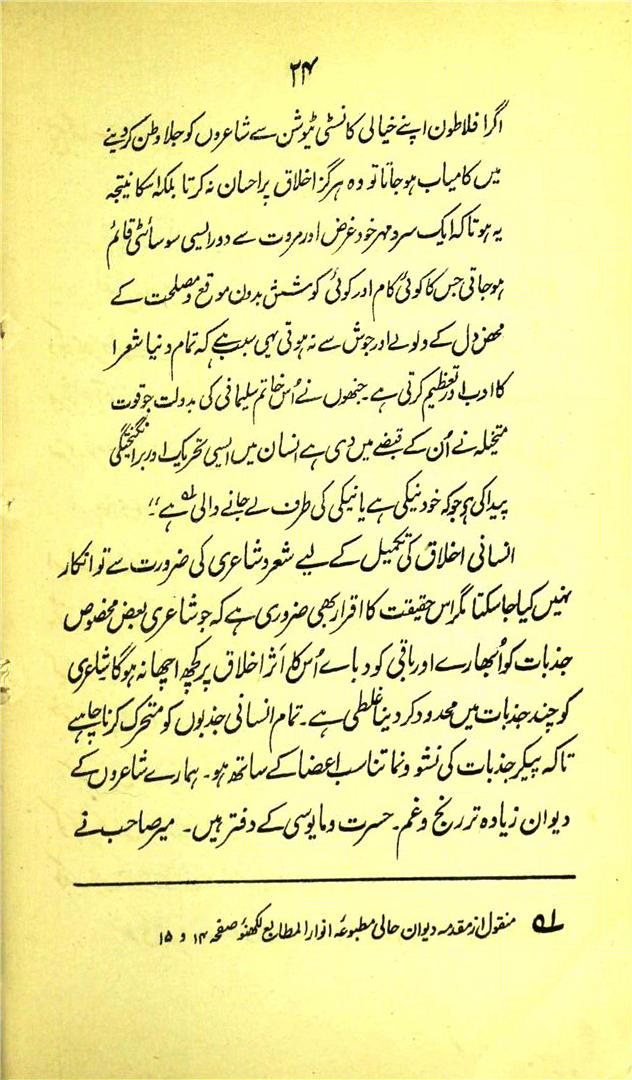 ۲۴
اگر افلاطون اپنے خیالی کانسٹی ٹیوشن سے شاعروں کو جلا وطن کر دینے
میں کامیاب ہو جاتا تو وہ ہرگز اخلاق پر احسان نہ کرتا بلکہ اسکا نتیجہ
یہ ہوتا کہ ایک سرد مہر خود غرض اور مروت سے دور ایسی سوسائٹی قائم
ہو جاتی جس کا کوئی کام اور کوئی کوشش بدون موقع و مصلحت کے
محض دل کے ولولے اور جوش سے نہ ہوتی یہی سبب ہے کہ تمام دنیا شعرا
کا ادب اور تعظیم کرتی ہے۔ جنھوں نے اُس خاتم سلیمانی کی بدولت جو قوت
متخیلہ نے اُن کے قبضے میں دی ہے انسان میں ایسی تحریک اور برانگیختگی
پیدا کی ہو جو کہ خود نیکی ہے یا نیکی کی طرف لے جانے والی ہے"۔
انسانی اخلاق کی تکمیل کے لیے شعر و شاعری کی ضرورت سے تو انکار
نہیں کیا جا سکتا مگر اس حقیقت کا اقرار بھی ضروری ہے کہ جو شاعری بعض مخصوص
جذبات کو اُبھارے اور باقی کو دبائے اُس کا اثر اخلاق پر کچھ اچھا نہ ہوگا شاعری
کو چند جذبات میں محدود کر دینا غلطی ہے۔ تمام انسانی جذبوں کو متحرک کرنا چاہیے
تاکہ پیکر جذبات کی نشو و نما تناسب اعضا کے ساتھ ہو۔ ہمارے شاعروں کے
دیوان زیادہ تر رنج و غم۔ حسرت و مایوسی کے دفتر ہیں۔ میر صاحب نے
لہ منقول از مقدمہ دیوان حالی مطبوعۂ انوار المطابع لکھنؤ صفحہ ۱۴ و ۱۵